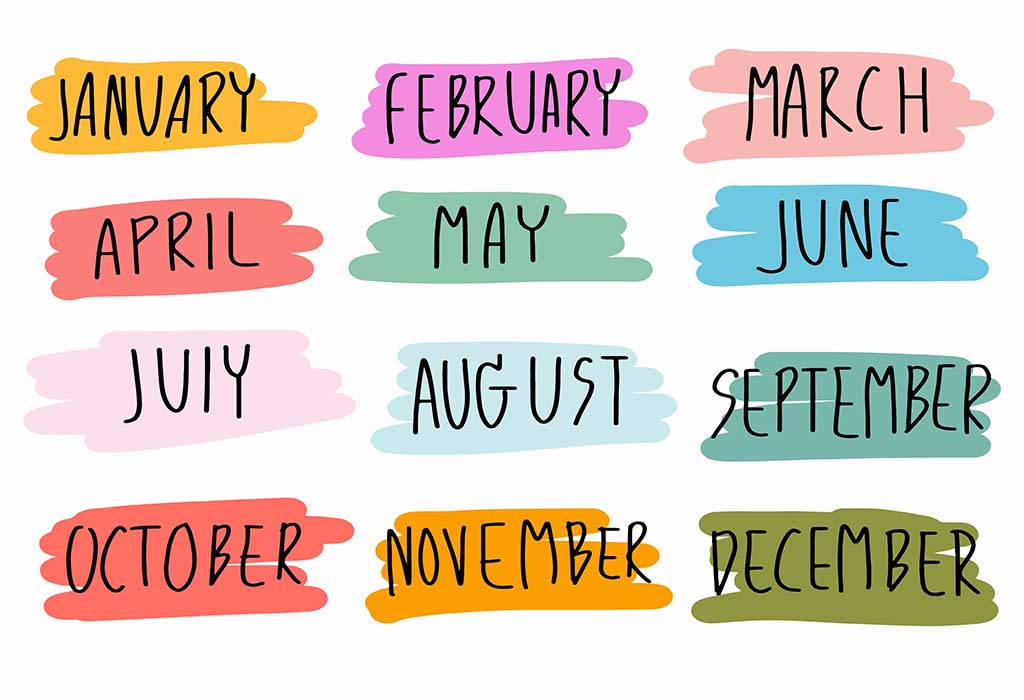 JANUARY FEBRUARY MARCH
APRIL MAY JUNE
JUlY AUGUST SEPTEMBER
OCTOBER NOVEMBER DECEMBER